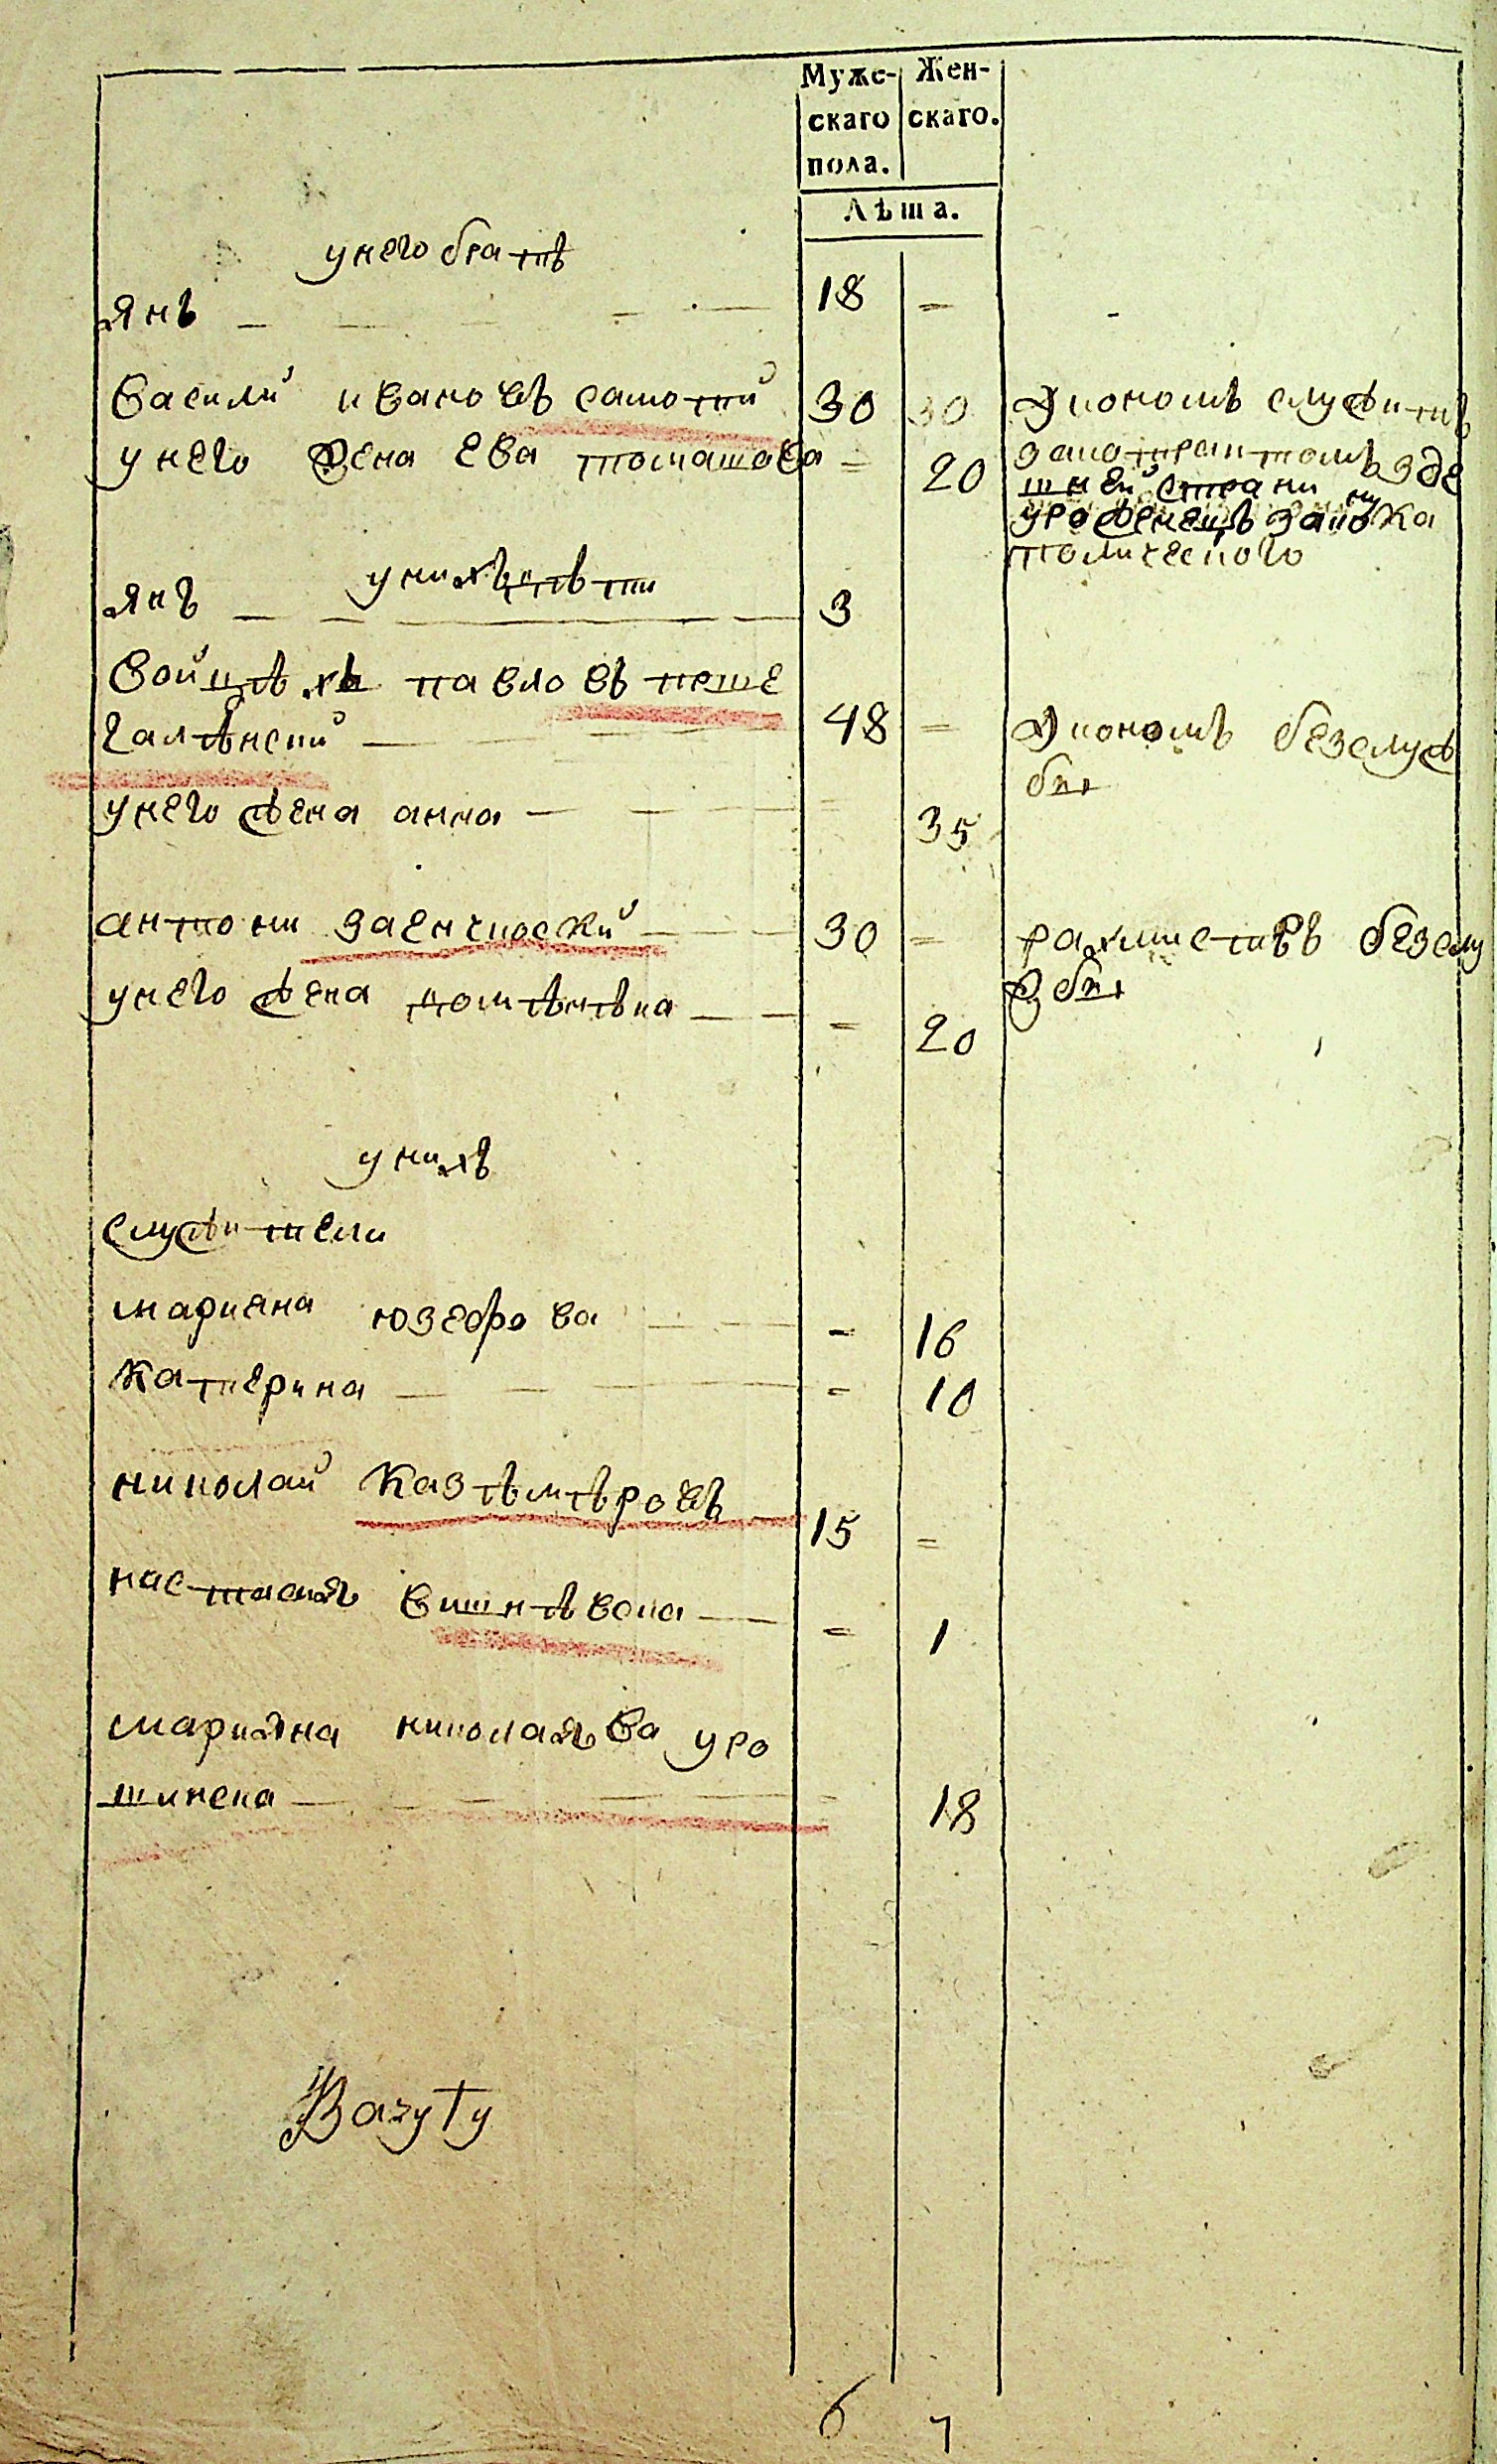 Муже- Жен-
скаго скаго.
пола.
Лѣта.
у него братъ
янъ 18 =
василий ивановъ самотий 30 30 экономъ служитъ
у него жена ева томашова = 20 законтрактомъ зде
шней страни
уроженецъ закону ка
толического
у нихъ дѣти
янъ 3
войцѣхъ павловъ перше
галѣнский 48 = экономъ безслуж
бы
у него жена анна = 35
антони заенчковский 30 = рахмистръ безслу
жбы
у него жена домѣнѣка = 20
у нихъ
служители
мариена юзефова = 16
катерина = 10
николай казѣмѣровъ 15 =
настасия вишнѣвска = 1
марияна николаява уро
шинска = 18
6 7